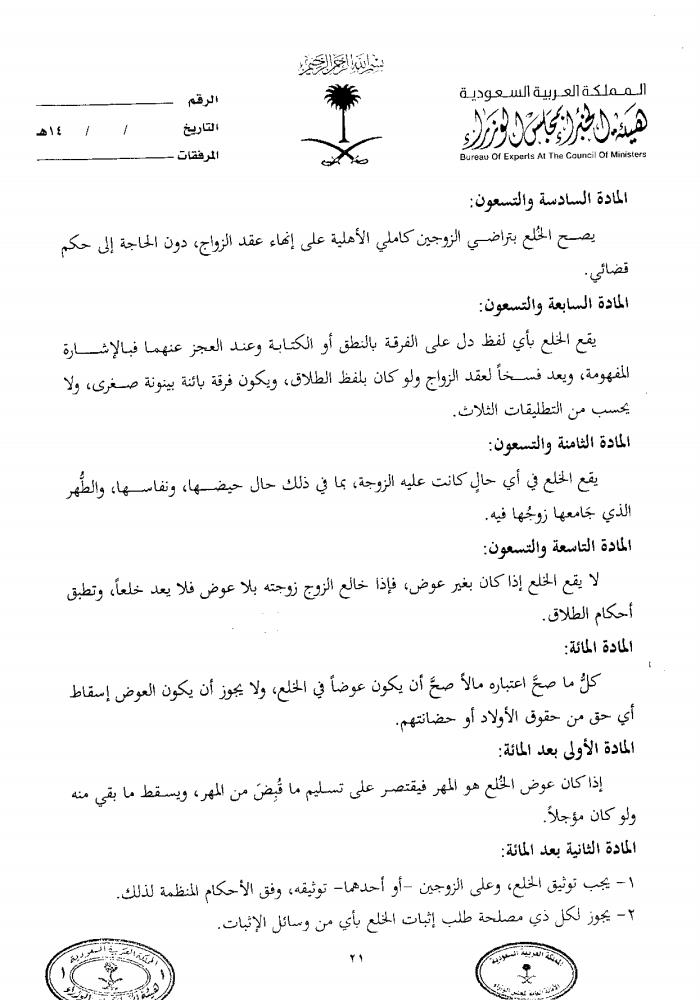 بسم الله الرحمن الرحيم
المملكة العربية السعودية
هيئة الخبراء بمجلس الوزراء
Bureau Of Experts At The Council Of Ministers
الرقم
التاريخ / / ١٤هـ
المرفقات
المادة السادسة والتسعون:
يصح الخُلع بتراضي الزوجين كاملي الأهلية على إنهاء عقد الزواج، دون الحاجة إلى حكم
قضائي.
المادة السابعة والتسعون:
يقع الخلع بأي لفظ دل على الفرقة بالنطق أو الكتابة وعند العجز عنهما فبالإشارة
المفهومة، ويعد فسخاً لعقد الزواج ولو كان بلفظ الطلاق، ويكون فرقة بائنة بينونة صغرى، ولا
يحسب من التطليقات الثلاث.
المادة الثامنة والتسعون:
يقع الخلع في أي حالٍ كانت عليه الزوجة، بما في ذلك حال حيضها، ونفاسها، والطُّهر
الذي جَامعها زوجُها فيه.
المادة التاسعة والتسعون:
لا يقع الخلع إذا كان بغير عوض، فإذا خالع الزوج زوجته بلا عوض فلا يعد خلعاً، وتطبق
أحكام الطلاق.
المادة المائة:
كلُّ ما صحَّ اعتباره مالاً صحَّ أن يكون عوضاً في الخلع، ولا يجوز أن يكون العوض إسقاط
أي حق من حقوق الأولاد أو حضانتهم.
المادة الأولى بعد المائة:
إذا كان عوض الخُلع هو المهر فيقتصر على تسليم ما قُبِضَ من المهر، ويسقط ما بقي منه
ولو كان مؤجلاً.
المادة الثانية بعد المائة:
١- يجب توثيق الخلع، وعلى الزوجين -أو أحدهما- توثيقه، وفق الأحكام المنظمة لذلك.
٢- يجوز لكل ذي مصلحة طلب إثبات الخلع بأي من وسائل الإثبات.
٢١
المملكة العربية السعودية
المملكة العربية السعودية